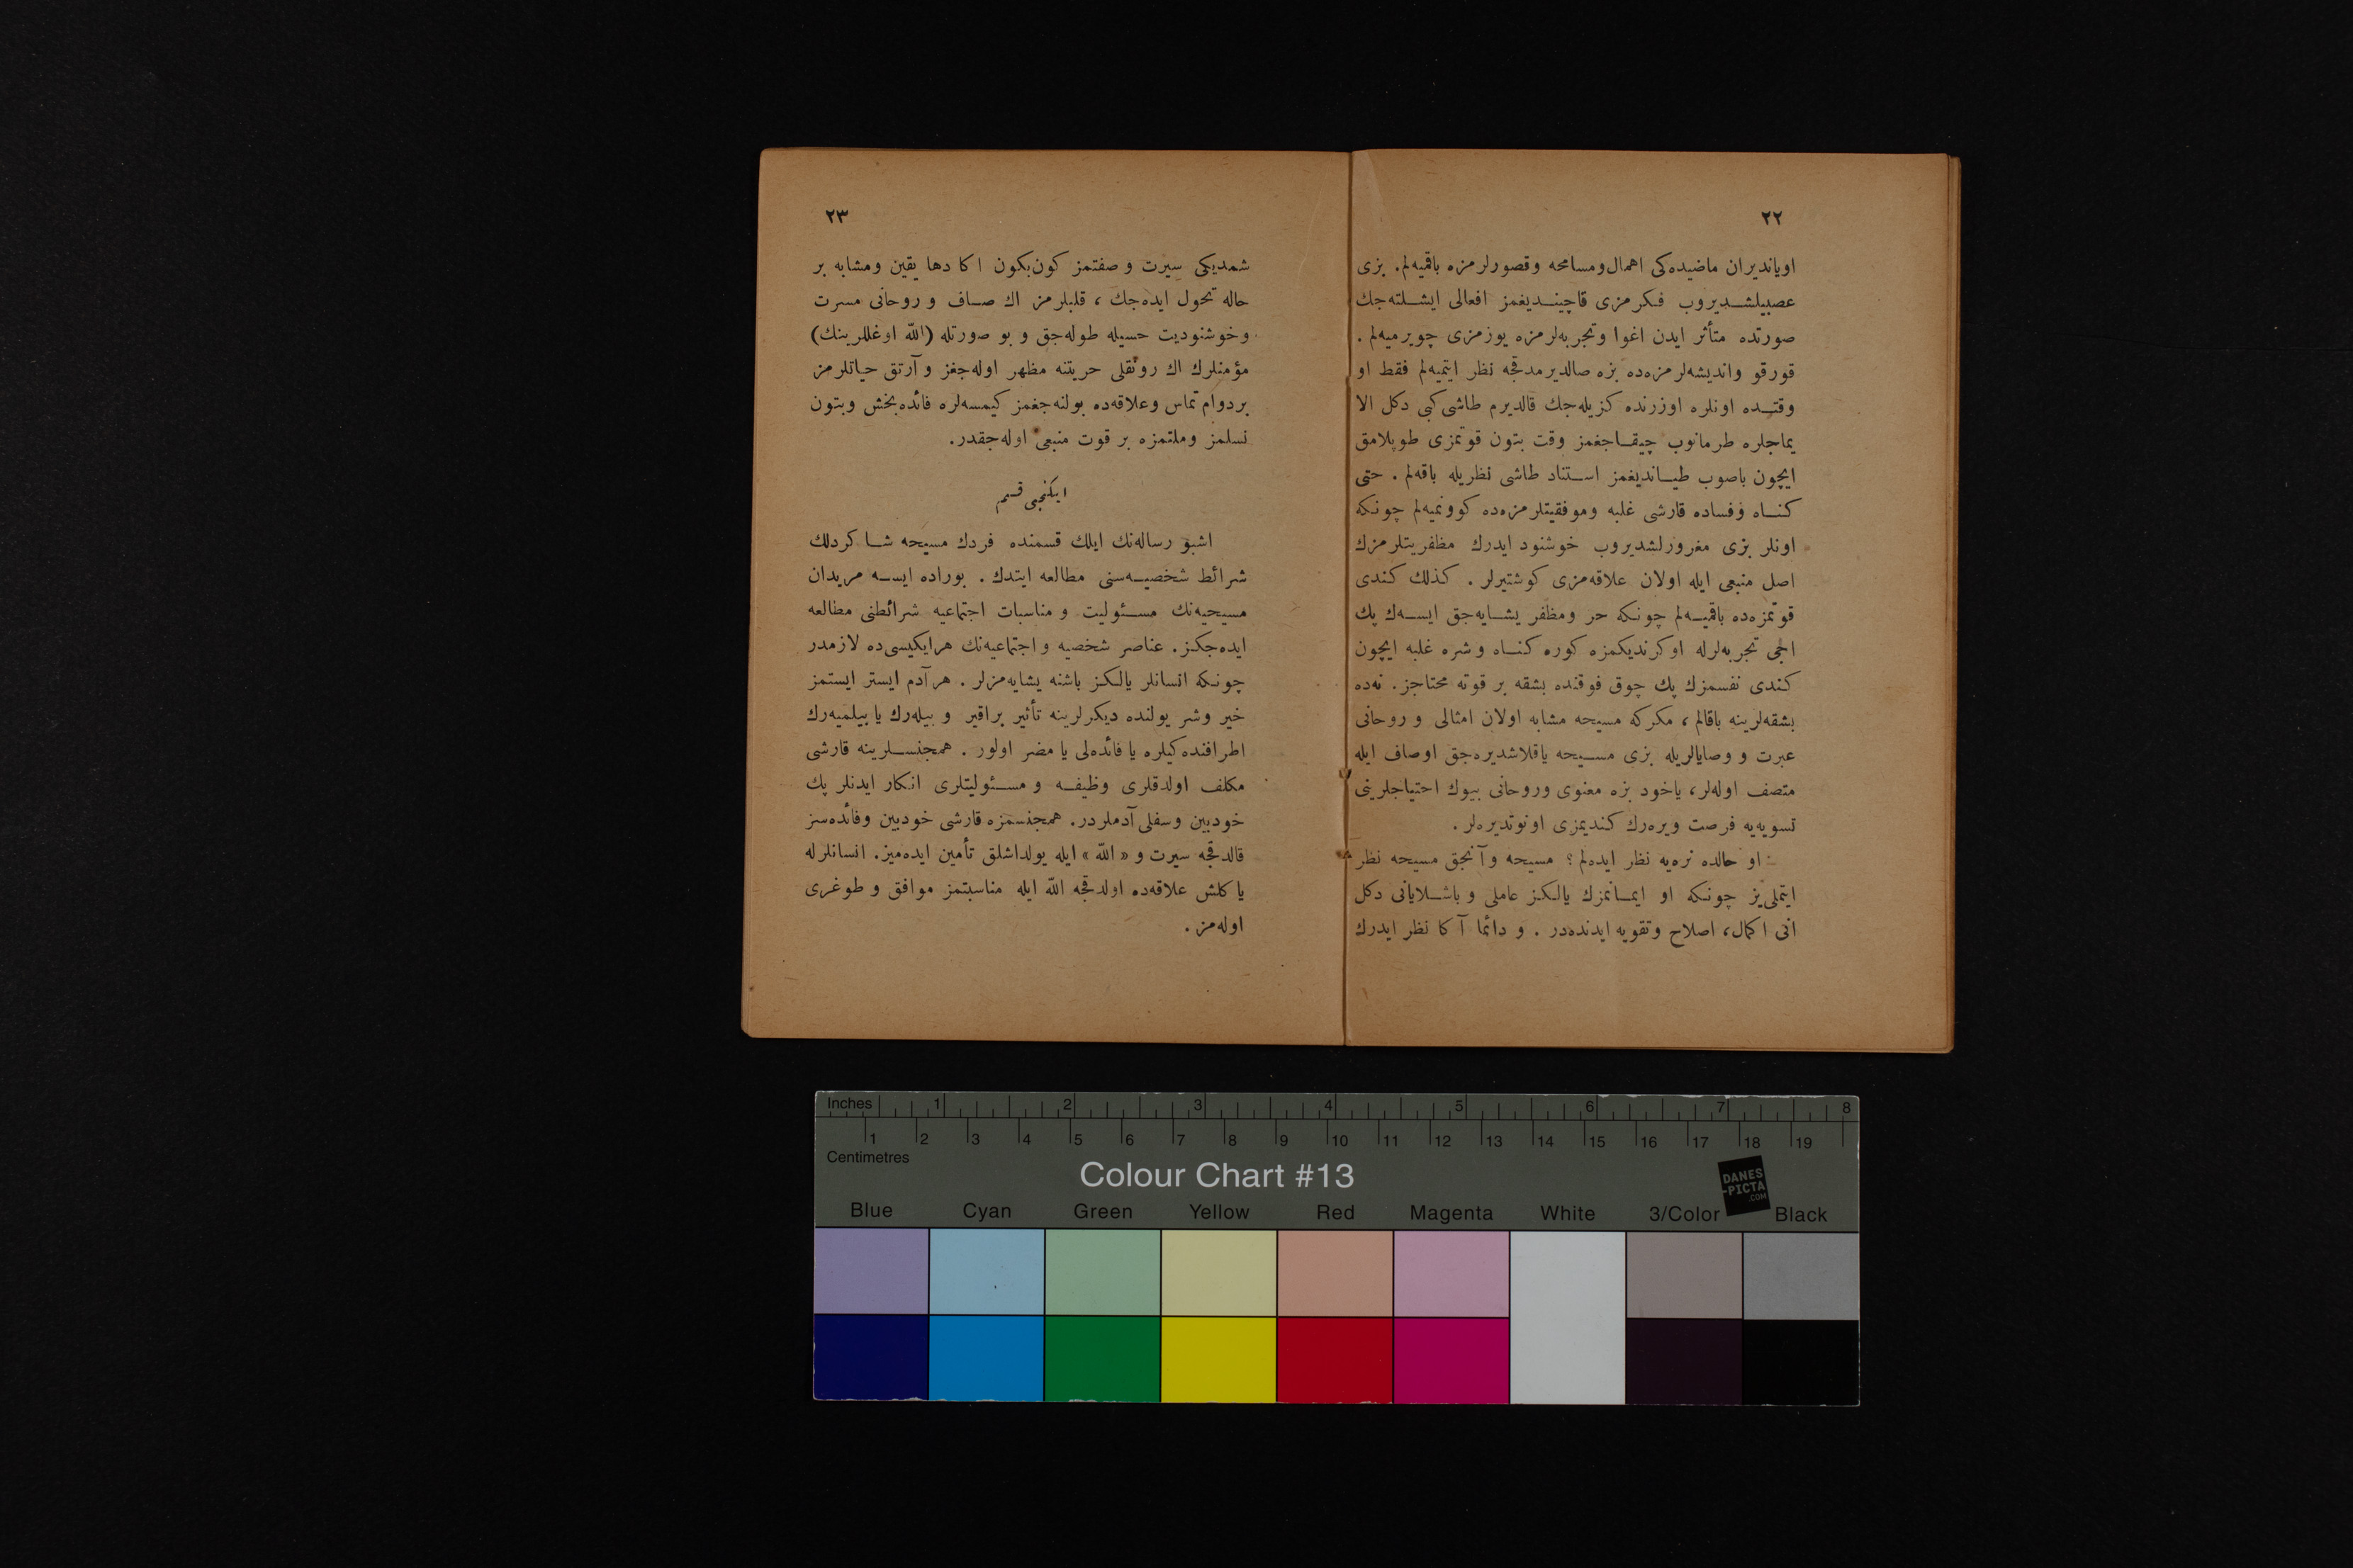 ٢٢
اویاندیران ماضیده‌كی اهمال ومسامحه وقصورلرمزه باقمیه‌لم. بزی
عصبیلشدیروب فكرمزی قاچیندیغمز افعالی ایشلته‌جك
صورتده متأثر ایدن اغوا وتجربه‌لرمزه یوزمزی چویرمیه‌لم .
قورقو واندیشه‌لرمزه‌ده بزه صالدیرمدقجه نظر ایتمیه‌لم فقط او
وقتده اونلره اوزرنده كزیله‌جك قالدیرم طاشی كبی دكل الا
یماجلره طرمانوب چیقاجغمز وقت بتون قوتمزی طوپلامق
ایچون باصوب طیاندیغمز استناد طاشی نظریله باقه‌لم . حتی
كناه وفساده قارشی غلبه وموفقیتلرمزه‌ده كوونمیه‌لم چونكه
اونلر بزی مغرورلشدیروب خوشنود ایدرك مظفریتلرمزك
اصل منبعی ایله اولان علاقه‌مزی كوشتیرلر . كذلك كندی
قوتمزه‌ده باقمیه‌لم چونكه حر ومظفر یشایه‌جق ایسه‌ك پك
اجی تجربه‌لرله اوكرندیكمزه كوره كناه وشره غلبه ایچون
كندی نفسمزك پك چوق فوقنده بشقه بر قوته محتاجز. نه‌ده
بشقه‌لرینه باقالم ، مكركه مسیحه مشابه اولان امثالی و روحانی
عبرت و وصایالریله بزی مسیحه یاقلاشدیره‌جق اوصاف ایله
متصف اوله‌لر، یاخود بزه معنوی وروحانی بیوك احتیاجلرینی
تسویه‌یه فرصت ویره‌رك كندیمزی اونوتدیره‌لر .
او حالده نره‌یه نظر ایده‌لم ؟ مسیحه وآنجق مسیحه نظر
ایتملی‌یز چونكه او ایمانمزك یالكز عاملی و باشلایانی دكل
انی اكمال، اصلاح وتقویه ایدنده‌در . و دائما آكا نظر ایدرك
٢٣
شمدیكی سیرت و صفتمز كون‌بكون اكا دها یقین ومشابه بر
حاله تحول ایده‌جك ، قلبلرمز اك صاف و روحانی مسرت
وخوشنودیت حسیله طوله‌جق و بو صورتله (اللّٰه اوغللرینك)
مؤمنلرك اك رونقلی حریتنه مظهر اوله‌جغز و آرتق حیاتلرمز
بردوام تماس وعلاقه‌ده بولنه‌جغمز كیمسه‌لره فائده‌بخش وبتون
نسلمز وملتمزه بر قوت منبعی اوله‌جقدر.
ایكنجی قسم
اشبو رساله‌نك ایلك قسمنده فردك مسیحه شاكردلك
شرائط شخصیه‌سنی مطالعه ایتدك . بوراده ایسه مریدان
مسیحیه‌نك مسئولیت و مناسبات اجتماعیه شرائطنی مطالعه
ایده‌جكز. عناصر شخصیه و اجتماعیه‌نك هرایكیسی‌ده لازمدر
چونكه انسانلر یالكز باشنه یشایه‌مزلر . هر آدم ایستر ایستمز
خیر وشر یولنده دیكرلرینه تأثیر براقیر و بیله‌رك یا بیلمیه‌رك
اطرافنده‌كیلره یا فائده‌لی یا مضر اولور . همجنسلرینه قارشی
مكلف اولدقلری وظیفه و مسئولیتلری انكار ایدنلر پك
خودبین وسفلی آدملردر. همجنسمزه قارشی خودبین وفائده‌سز
قالدقجه سیرت و « اللّٰه » ایله یولداشلق تأمین ایده‌میز. انسانلرله
یاكلش علاقه‌ده اولدقجه اللّٰه ایله مناسبتمز موافق و طوغری
اوله‌مز .
Inches 1 2 3 4 5 6 7 8
1 2 3 4 5 6 7 8 9 10 11 12 13 14 15 16 17 18 19
Centimetres
Colour Chart #13
DANES
-PICTA
.COM
Blue Cyan Green Yellow Red Magenta White 3/Color Black